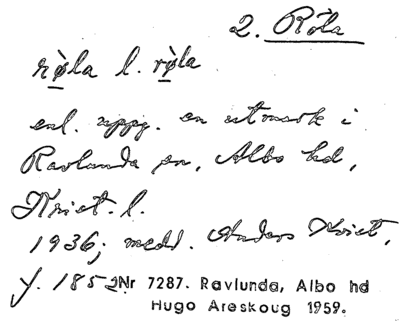 2. Röla
rø̀la l. rø̀la
enl. uppg. en utmark i
Ravlunda sn, Albo hd,
Krist. l.
1936; medd. Anders Kvist,
f. 1852 Nr 7287. Ravlunda, Albo hd
Hugo Areskoug 1959.